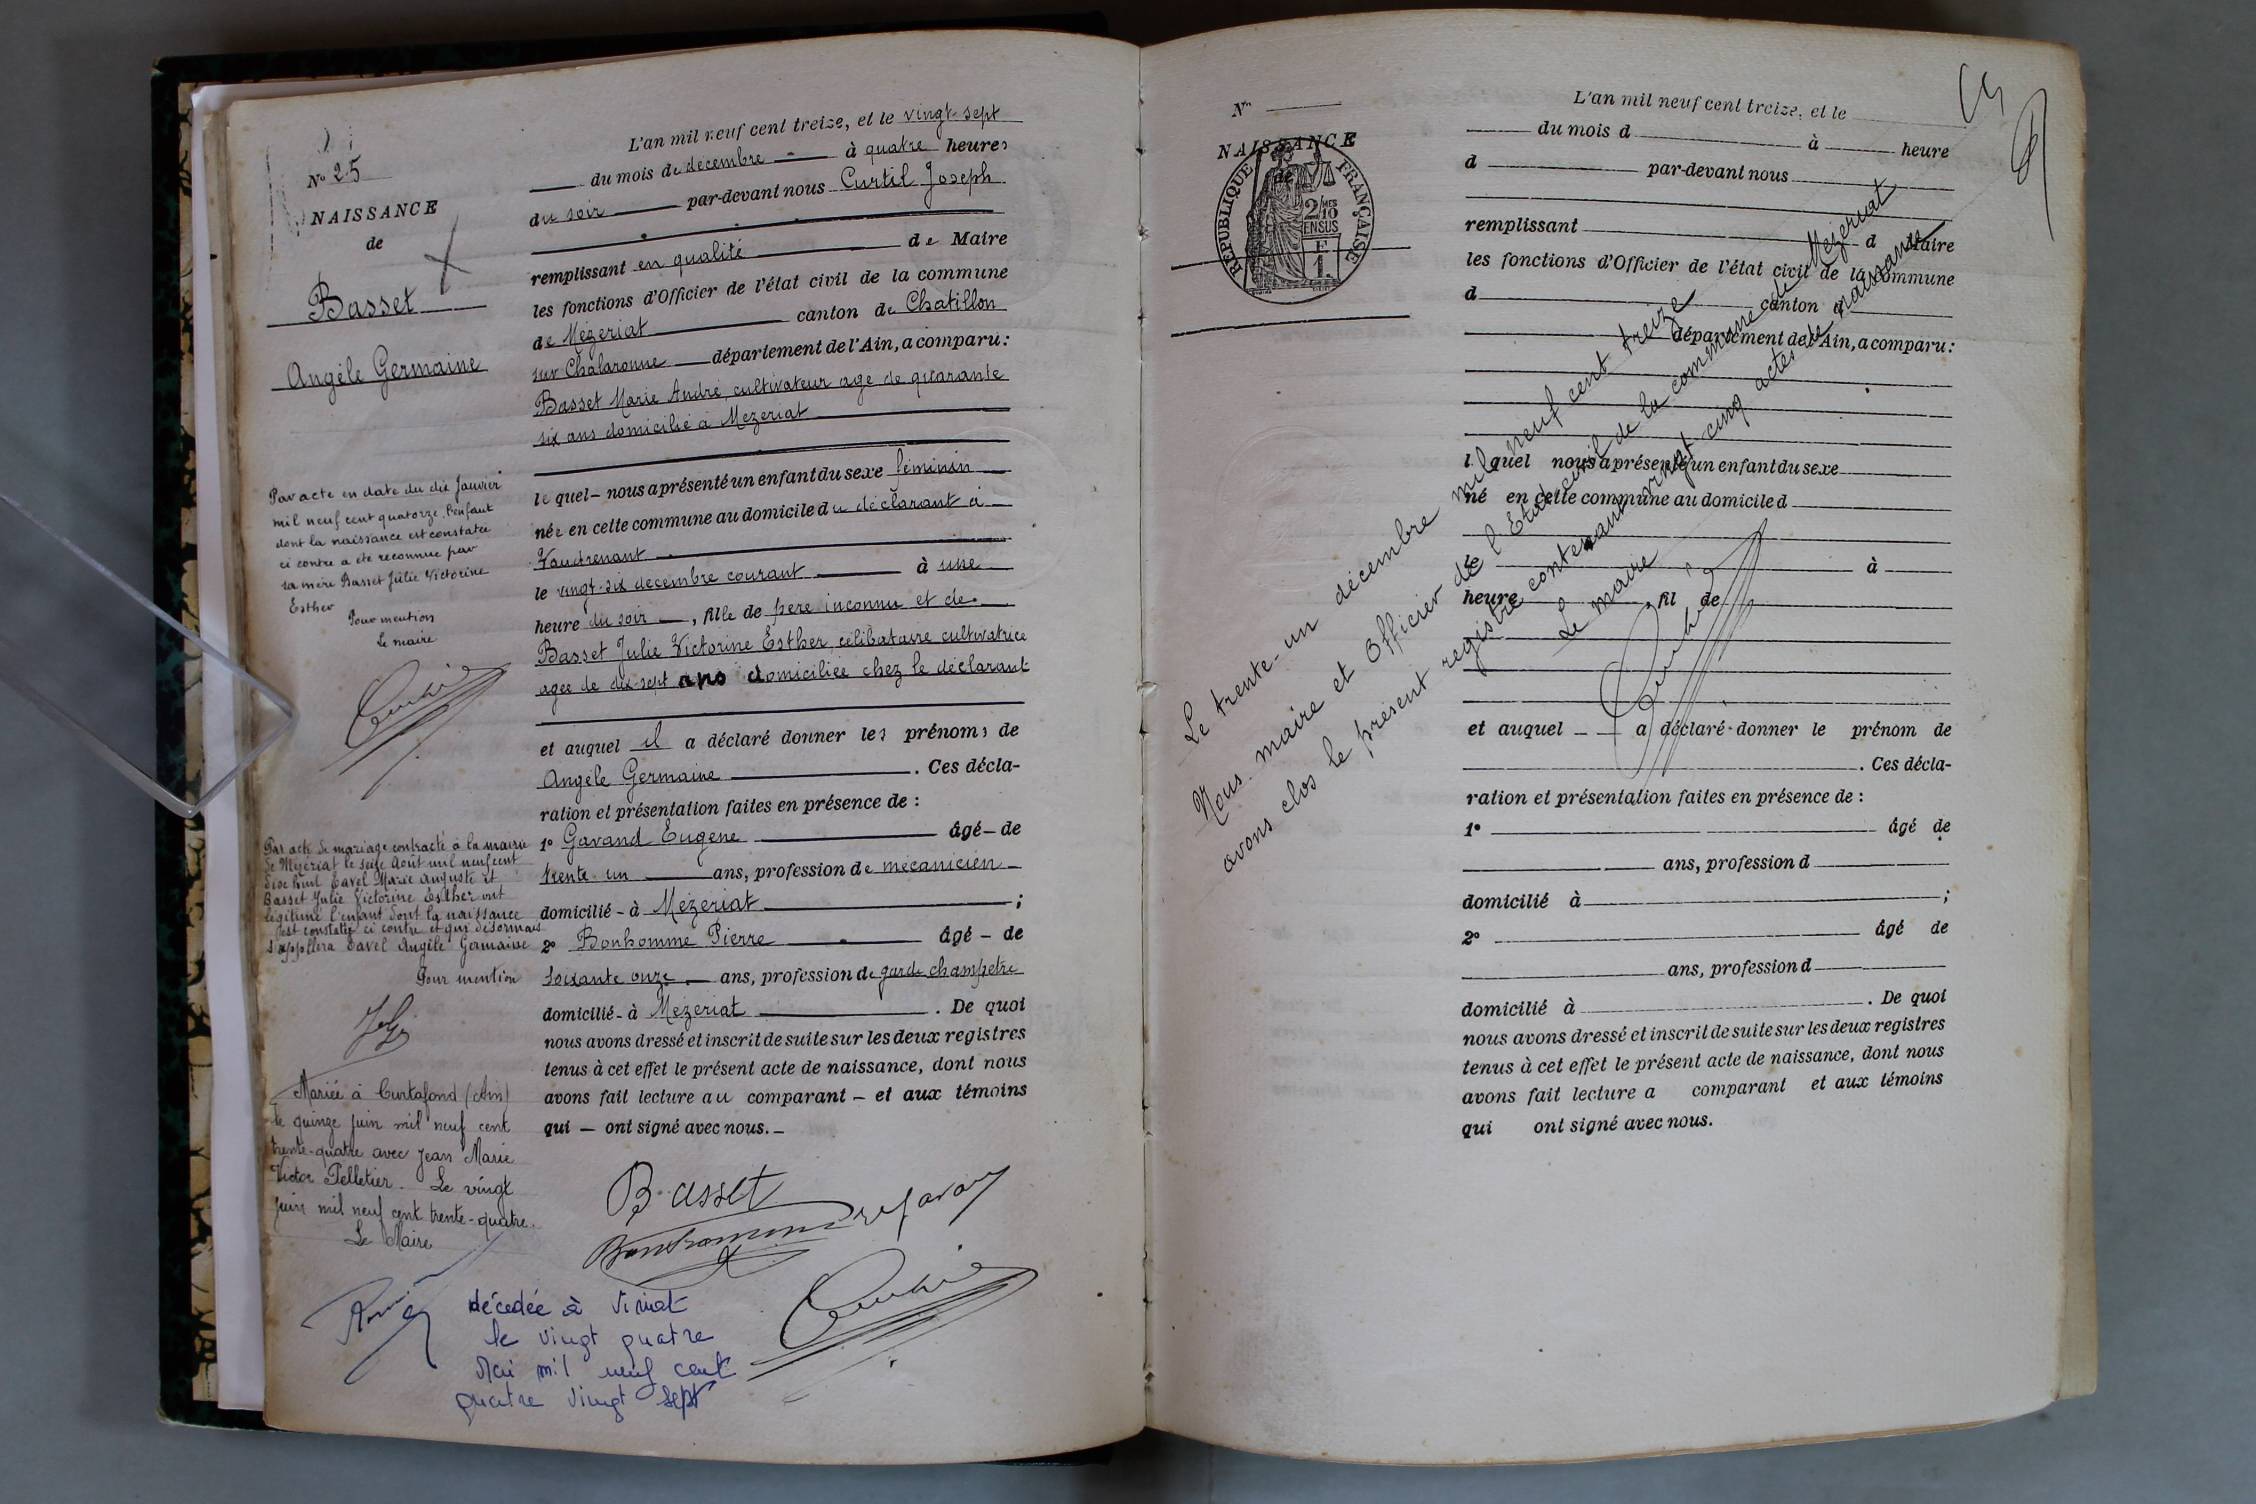 N° 25
NAISSANCE
de
Basset
Angèle Germaine
Par acte en date du dix Janvier
mil neuf cent quatorze, l'enfant
dont la naissance est constatée
ci contre a été reconnue par
sa mère Basset Julie Victorine
Esther
Pour mention
Le maire
Par acte de mariage contracté à la mairie
de Mézériat le seize Août mil neuf cent
dix huit Cavel Marie Auguste et
Basset Julie Victorine Esther ont
légitimé l'enfant dont la naissance
est constatée ci contre et qui désormais
s'appellera Cavel Angèle Germaine
Pour mention
Mariée à Curtafond (Ain)
le quinze juin mil neuf cent
trente-quatre avec Jean Marie
Victor Pelletier. Le vingt
juin mil neuf cent trente-quatre.
Le Maire
L'an mil neuf cent treize, et le vingt-sept
du mois de décembre à quatre heures
du soir par-devant nous Curtil Joseph
remplissant en qualité de Maire
les fonctions d'Officier de l'état civil de la commune
de Mézeriat canton de Chatillon
sur Chalaronne département de l'Ain, a comparu:
Basset Marie André, cultivateur agé de quarante
six ans domicilié à Mézeriat
le quel – nous a présenté un enfant du sexe féminin
née en cette commune au domicile du déclarant à
Vaudrenant
le vingt-six décembre courant à une
heure du soir, fille de père inconnu et de
Basset Julie Victorine Esther, célibataire cultivatrice
agée de dix-sept ans domiciliée chez le déclarant
et auquel il a déclaré donner les prénoms de
Angèle Germaine. Ces décla-
ration et présentation faites en présence de :
1° Gavand Eugène âgé – de
trente un ans, profession de mécanicien
domicilié - à Mézeriat ;
2° Bonhomme Pierre âgé – de
soixante onze ans, profession de garde champêtre
domicilié - à Mézeriat. De quoi
nous avons dressé et inscrit de suite sur les deux registres
tenus à cet effet le présent acte de naissance, dont nous
avons fait lecture au comparant – et aux témoins
qui – ont signé avec nous. –
Basset
Bonhomme
décédée à Viriat
le vingt quatre
Mai mil neuf cent
quatre vingt sept
N°
NAISSANCE
de
RÉPUBLIQUE FRANÇAISE
2/10 MES
EN SUS
F
1.
L'an mil neuf cent treize, et le
du mois d à heure
d par-devant nous
remplissant d Maire
les fonctions d'Officier de l'état civil de la commune
d canton d
département de l'Ain, a comparu:
l quel nous a présenté un enfant du sexe
né en cette commune au domicile d
le à
heure fil de
et auquel a déclaré donner le prénom de
. Ces décla-
ration et présentation faites en présence de :
1° âgé de
ans, profession d
domicilié à ;
2° âgé de
ans, profession d
domicilié à . De quoi
nous avons dressé et inscrit de suite sur les deux registres
tenus à cet effet le présent acte de naissance, dont nous
avons fait lecture a comparant et aux témoins
qui ont signé avec nous.
Le trente-un décembre mil neuf cent treize
Nous maire et Officier de l'Etat civil de la commune de Mézeriat
avons clos le présent registre contenant vingt cinq actes de naissance
Le maire